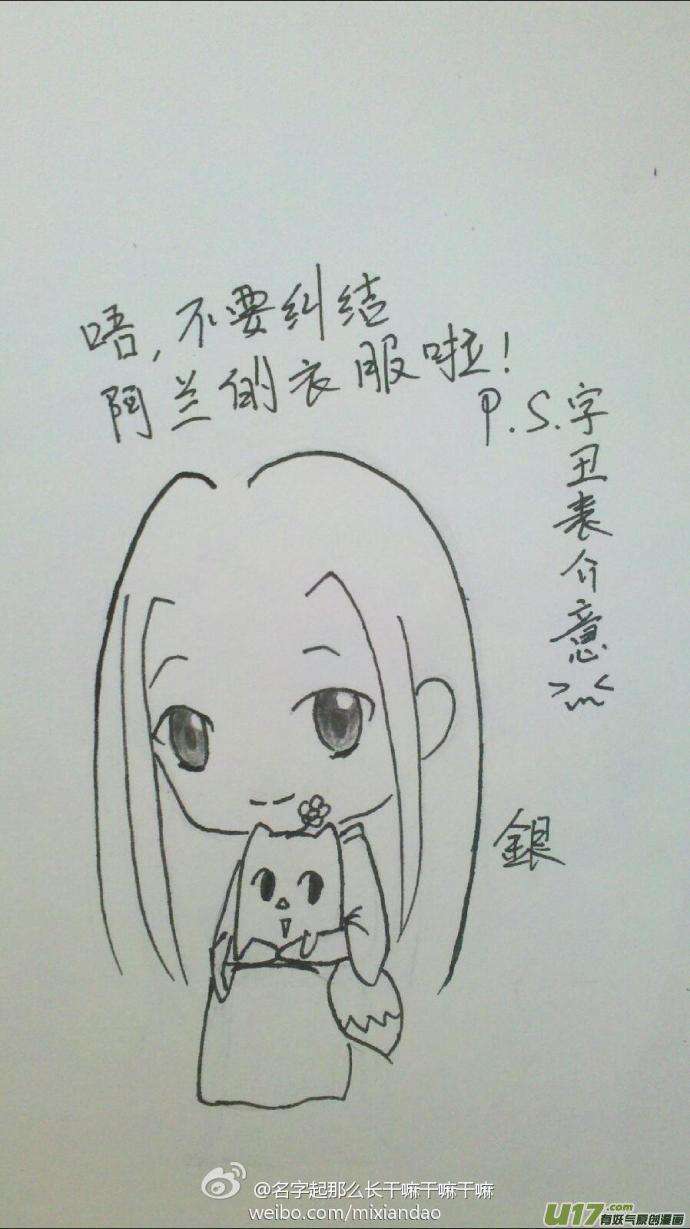 唔,不要纠结
阿兰的衣服啦!
P.S.字丑表介意>m<
銀
@名字起那么长干嘛干嘛干嘛
weibo.com/mixiandao
U17.com
有妖气原创漫画